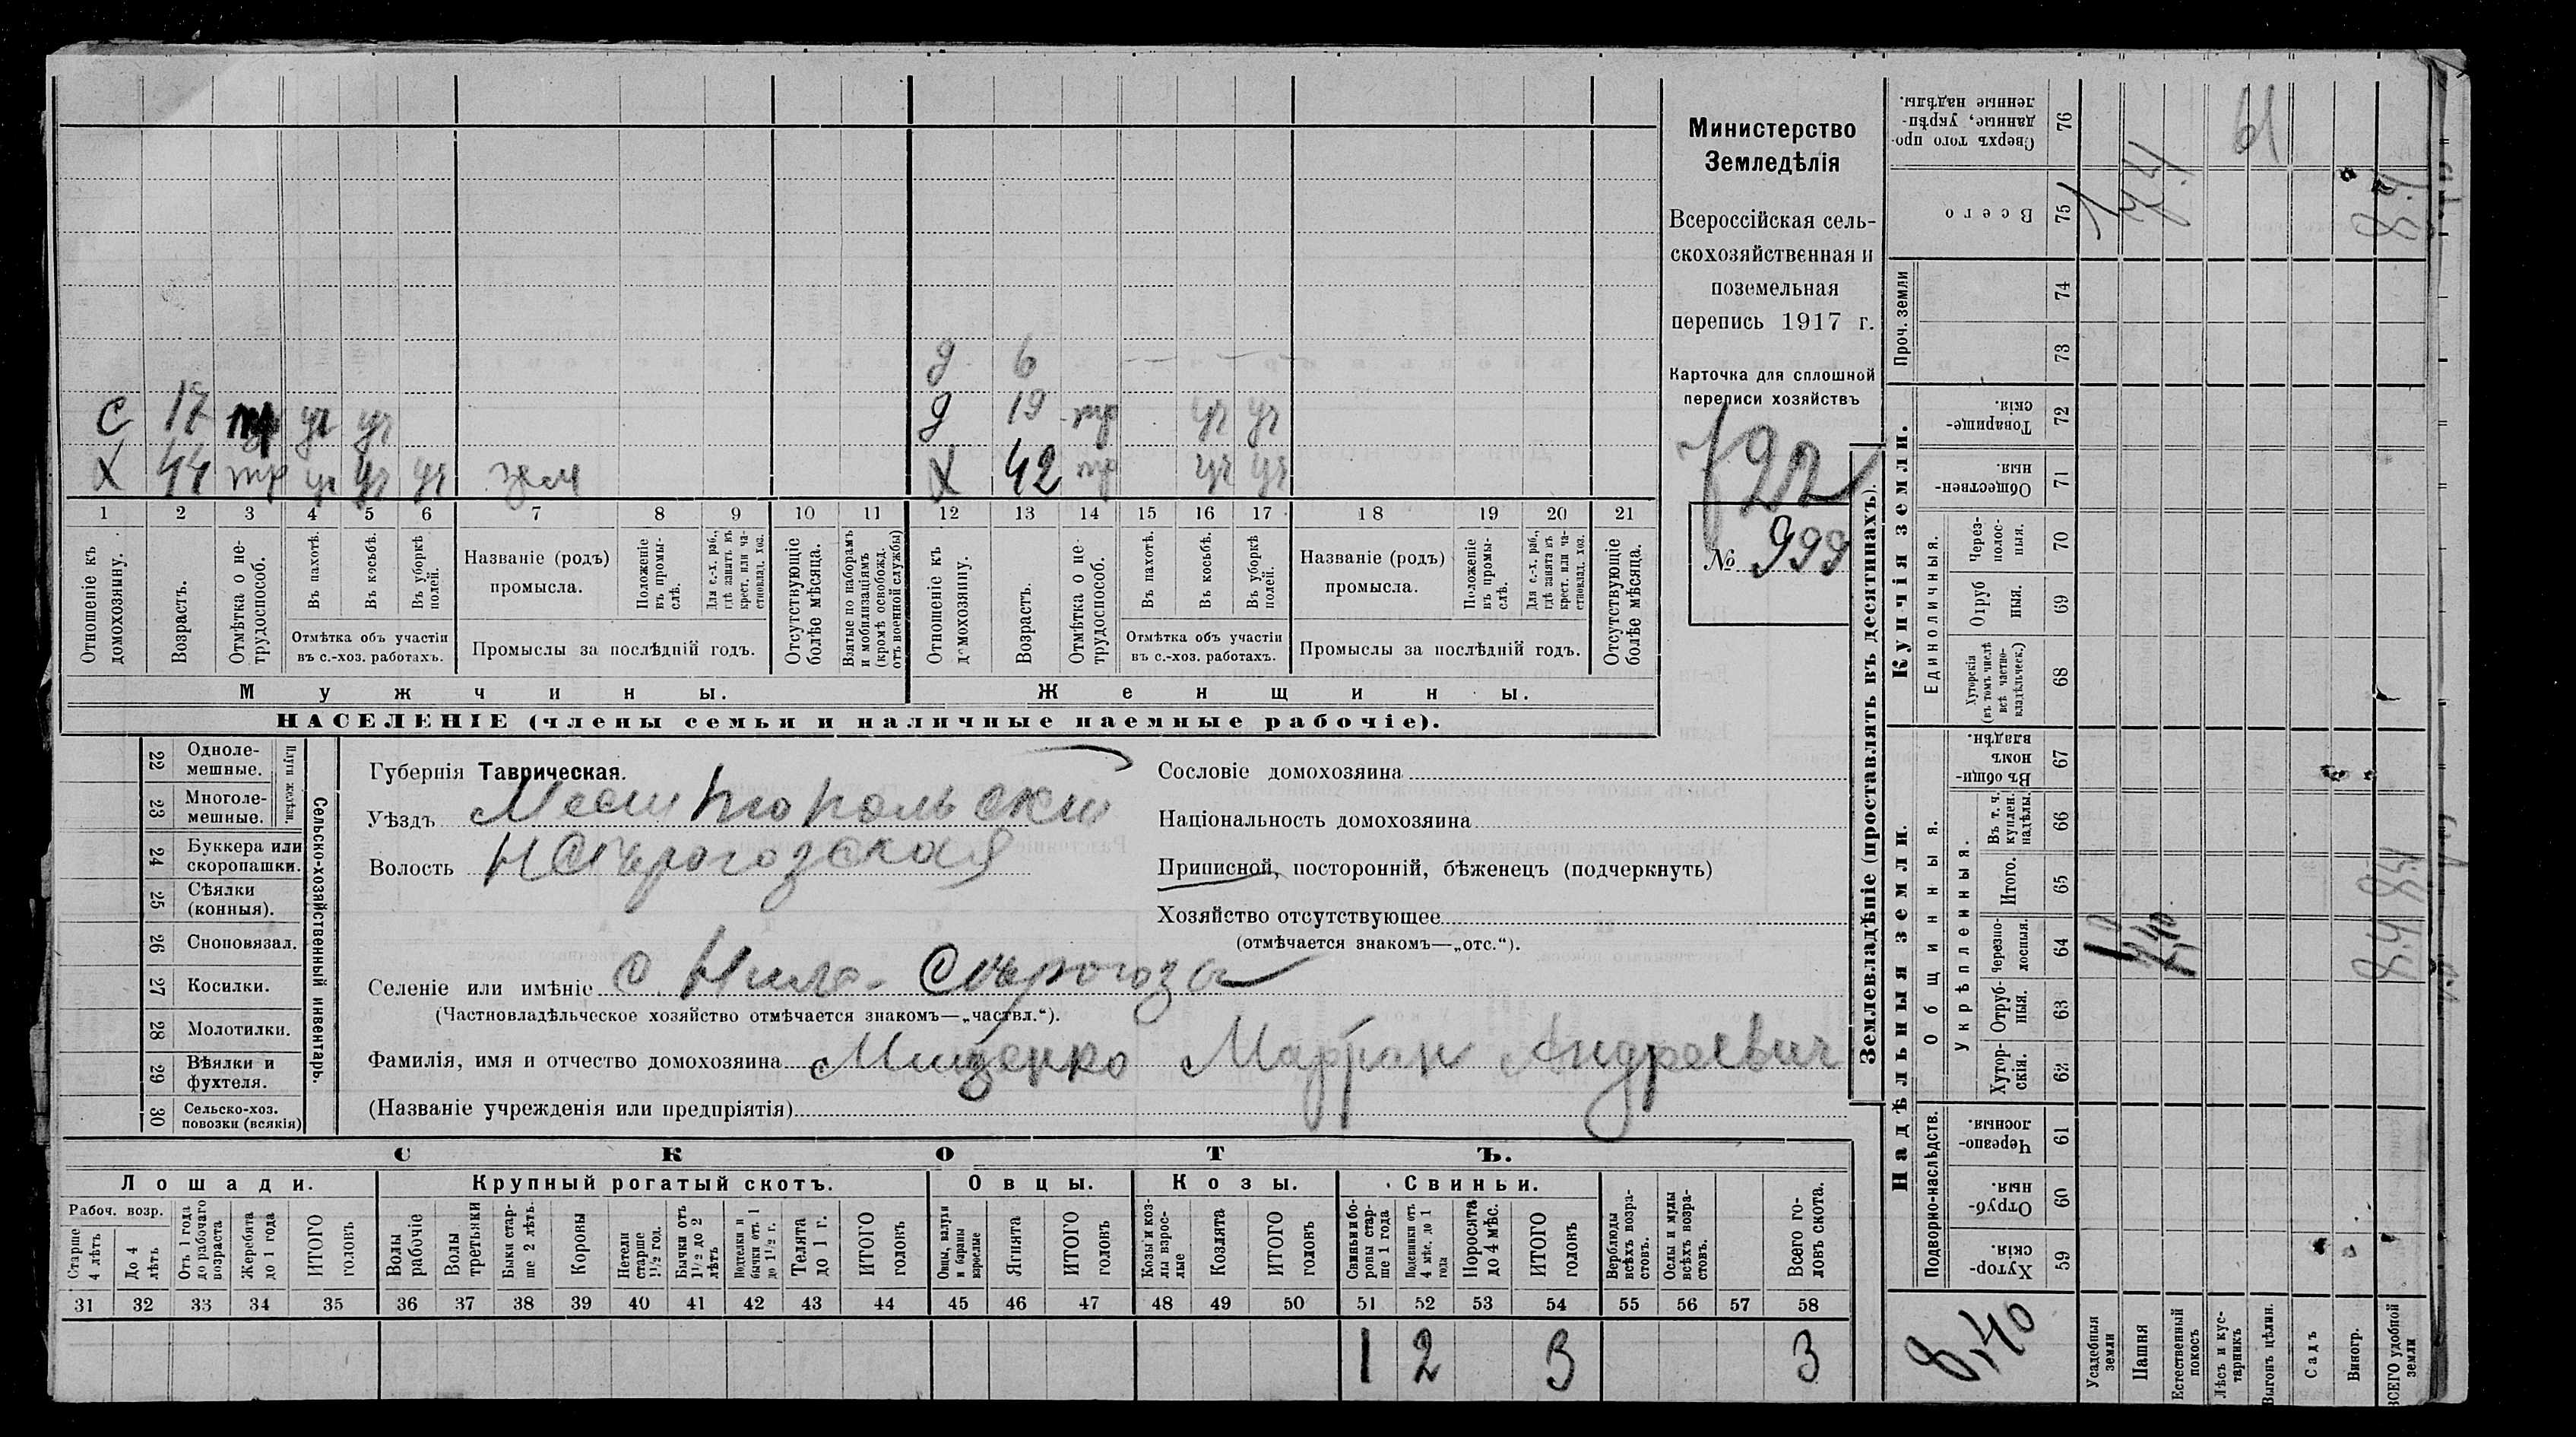 Министерство
Земледѣлія
Всероссійская сель-
скохозяйственная и
поземельная
перепись 1917 г.
Карточка для сплошной
переписи хозяйствъ
№ 999
д 6
с 17 уч уч
д 19 тр уч уч
х 44 тр уч уч уч зем
х 42 тр уч уч
1 2 3 4 5 6 7 8 9 10 11 12 13 14 15 16 17 18 19 20 21
Отношеніе къ домохозяину.
Возрастъ.
Отмѣтка о не-трудоспособ.
Въ пахотѣ.
Въ косьбѣ.
Въ уборкѣ полей.
Отмѣтка объ участіи въ с.-хоз. работахъ.
Названіе (родъ) промысла.
Положеніе въ промы-слѣ.
Для с.-х. раб., гдѣ занятъ въ крест. или ча-стновлад. хоз.
Промыслы за послѣдній годъ.
Отсутствующіе болѣе мѣсяца.
Взятые по наборамъ и мобилизаціямъ (кромѣ освобожд. отъ военной службы)
Отношеніе къ домохозяину.
Возрастъ.
Отмѣтка о не-трудоспособ.
Въ пахотѣ.
Въ косьбѣ.
Въ уборкѣ полей.
Отмѣтка объ участіи въ с.-хоз. работахъ.
Названіе (родъ) промысла.
Положеніе въ промы-слѣ.
Для с.-х. раб., гдѣ занята въ крест. или ча-стновлад. хоз.
Промыслы за послѣдній годъ.
Отсутствующіе болѣе мѣсяца.
Мужчины.
Женщины.
НАСЕЛЕНІЕ (члены семьи и наличные наемные рабочіе).
Сельско-хозяйственный инвентарь.
Плуги желѣзн.
22 Одноле-мешные.
23 Многоле-мешные.
24 Буккера или скоропашки.
25 Сѣялки (конныя).
26 Сноповязал.
27 Косилки.
28 Молотилки.
29 Вѣялки и фухтеля.
30 Сельско-хоз. повозки (всякія)
Губернія Таврическая.
Уѣздъ Мелитопольскій
Волость Н Сѣрогозская
Селеніе или имѣніе с. Ниж- Сѣрогозы
(Частновладѣльческое хозяйство отмѣчается знакомъ—„частвл.“).
Фамилія, имя и отчество домохозяина Мищенко Марфан Андреевич
(Названіе учрежденія или предпріятія)
Сословіе домохозяина
Національность домохозяина
Приписной, посторонній, бѣженецъ (подчеркнуть)
Хозяйство отсутствующее
(отмѣчается знакомъ—„отс.“).
СКОТЪ.
Лошади. Крупный рогатый скотъ. Овцы. Козы. Свиньи.
Рабоч. возр.
Старше 4 лѣтъ
До 4 лѣтъ
Отъ 1 года до рабочаго возраста
Жеребята до 1 года
ИТОГО головъ
Волы рабочіе
Волы третьяки
Быки стар-ше 2 лѣтъ.
Коровы
Нетели старше 1½ год.
Бычки отъ 1½ до 2 лѣтъ
Подтелки и бычки отъ 1 до 1½ г.
Телята до 1 г.
ИТОГО головъ
Овцы, валухи и бараны взрослые
Ягнята
ИТОГО головъ
Козы и коз-лы взрос-лые
Козлята
ИТОГО головъ
Свиньи и бо-ровы стар-ше 1 года
Подсвинки отъ 4 мѣс. до 1 года
Поросята до 4 мѣс.
ИТОГО головъ
Верблюды всѣхъ возра-стовъ.
Ослы и мулы всѣхъ возра-стовъ.
Всего го-ловъ скота.
31 32 33 34 35 36 37 38 39 40 41 42 43 44 45 46 47 48 49 50 51 52 53 54 55 56 57 58
1 2 3 3
Землевладѣніе (проставлять въ десятинахъ).
Купчія земли.
Надѣльныя земли.
Сверхъ того про-данные, укрѣп-ленные надѣлы. 76
Всего 75
Проч. земли 74 73
Товарище-скія. 72
Обществен-ныя. 71
Единоличныя.
Через-полос-ныя. 70
Отруб-ныя. 69
Хуторскія (въ томъ числѣ всѣ частно-владѣльческ.) 68
Общинныя.
Въ общи-номъ владѣн. 67
Укрѣпленныя.
Въ т. ч. куплен. надѣлы. 66
Итого. 65
Черезпо-лосныя. 64
Отруб-ныя. 63
Хутор-скія. 62
Подворно-наслѣдств.
Черезпо-лосныя. 61
Отруб-ныя. 60
Хутор-скія. 59
8,40
Усадебныя земли
Пашня
Естественный покосъ
Лѣсъ и кус-тарникъ
Выгонъ цѣлин.
Садъ
Виногр.
ВСЕГО удобной земли